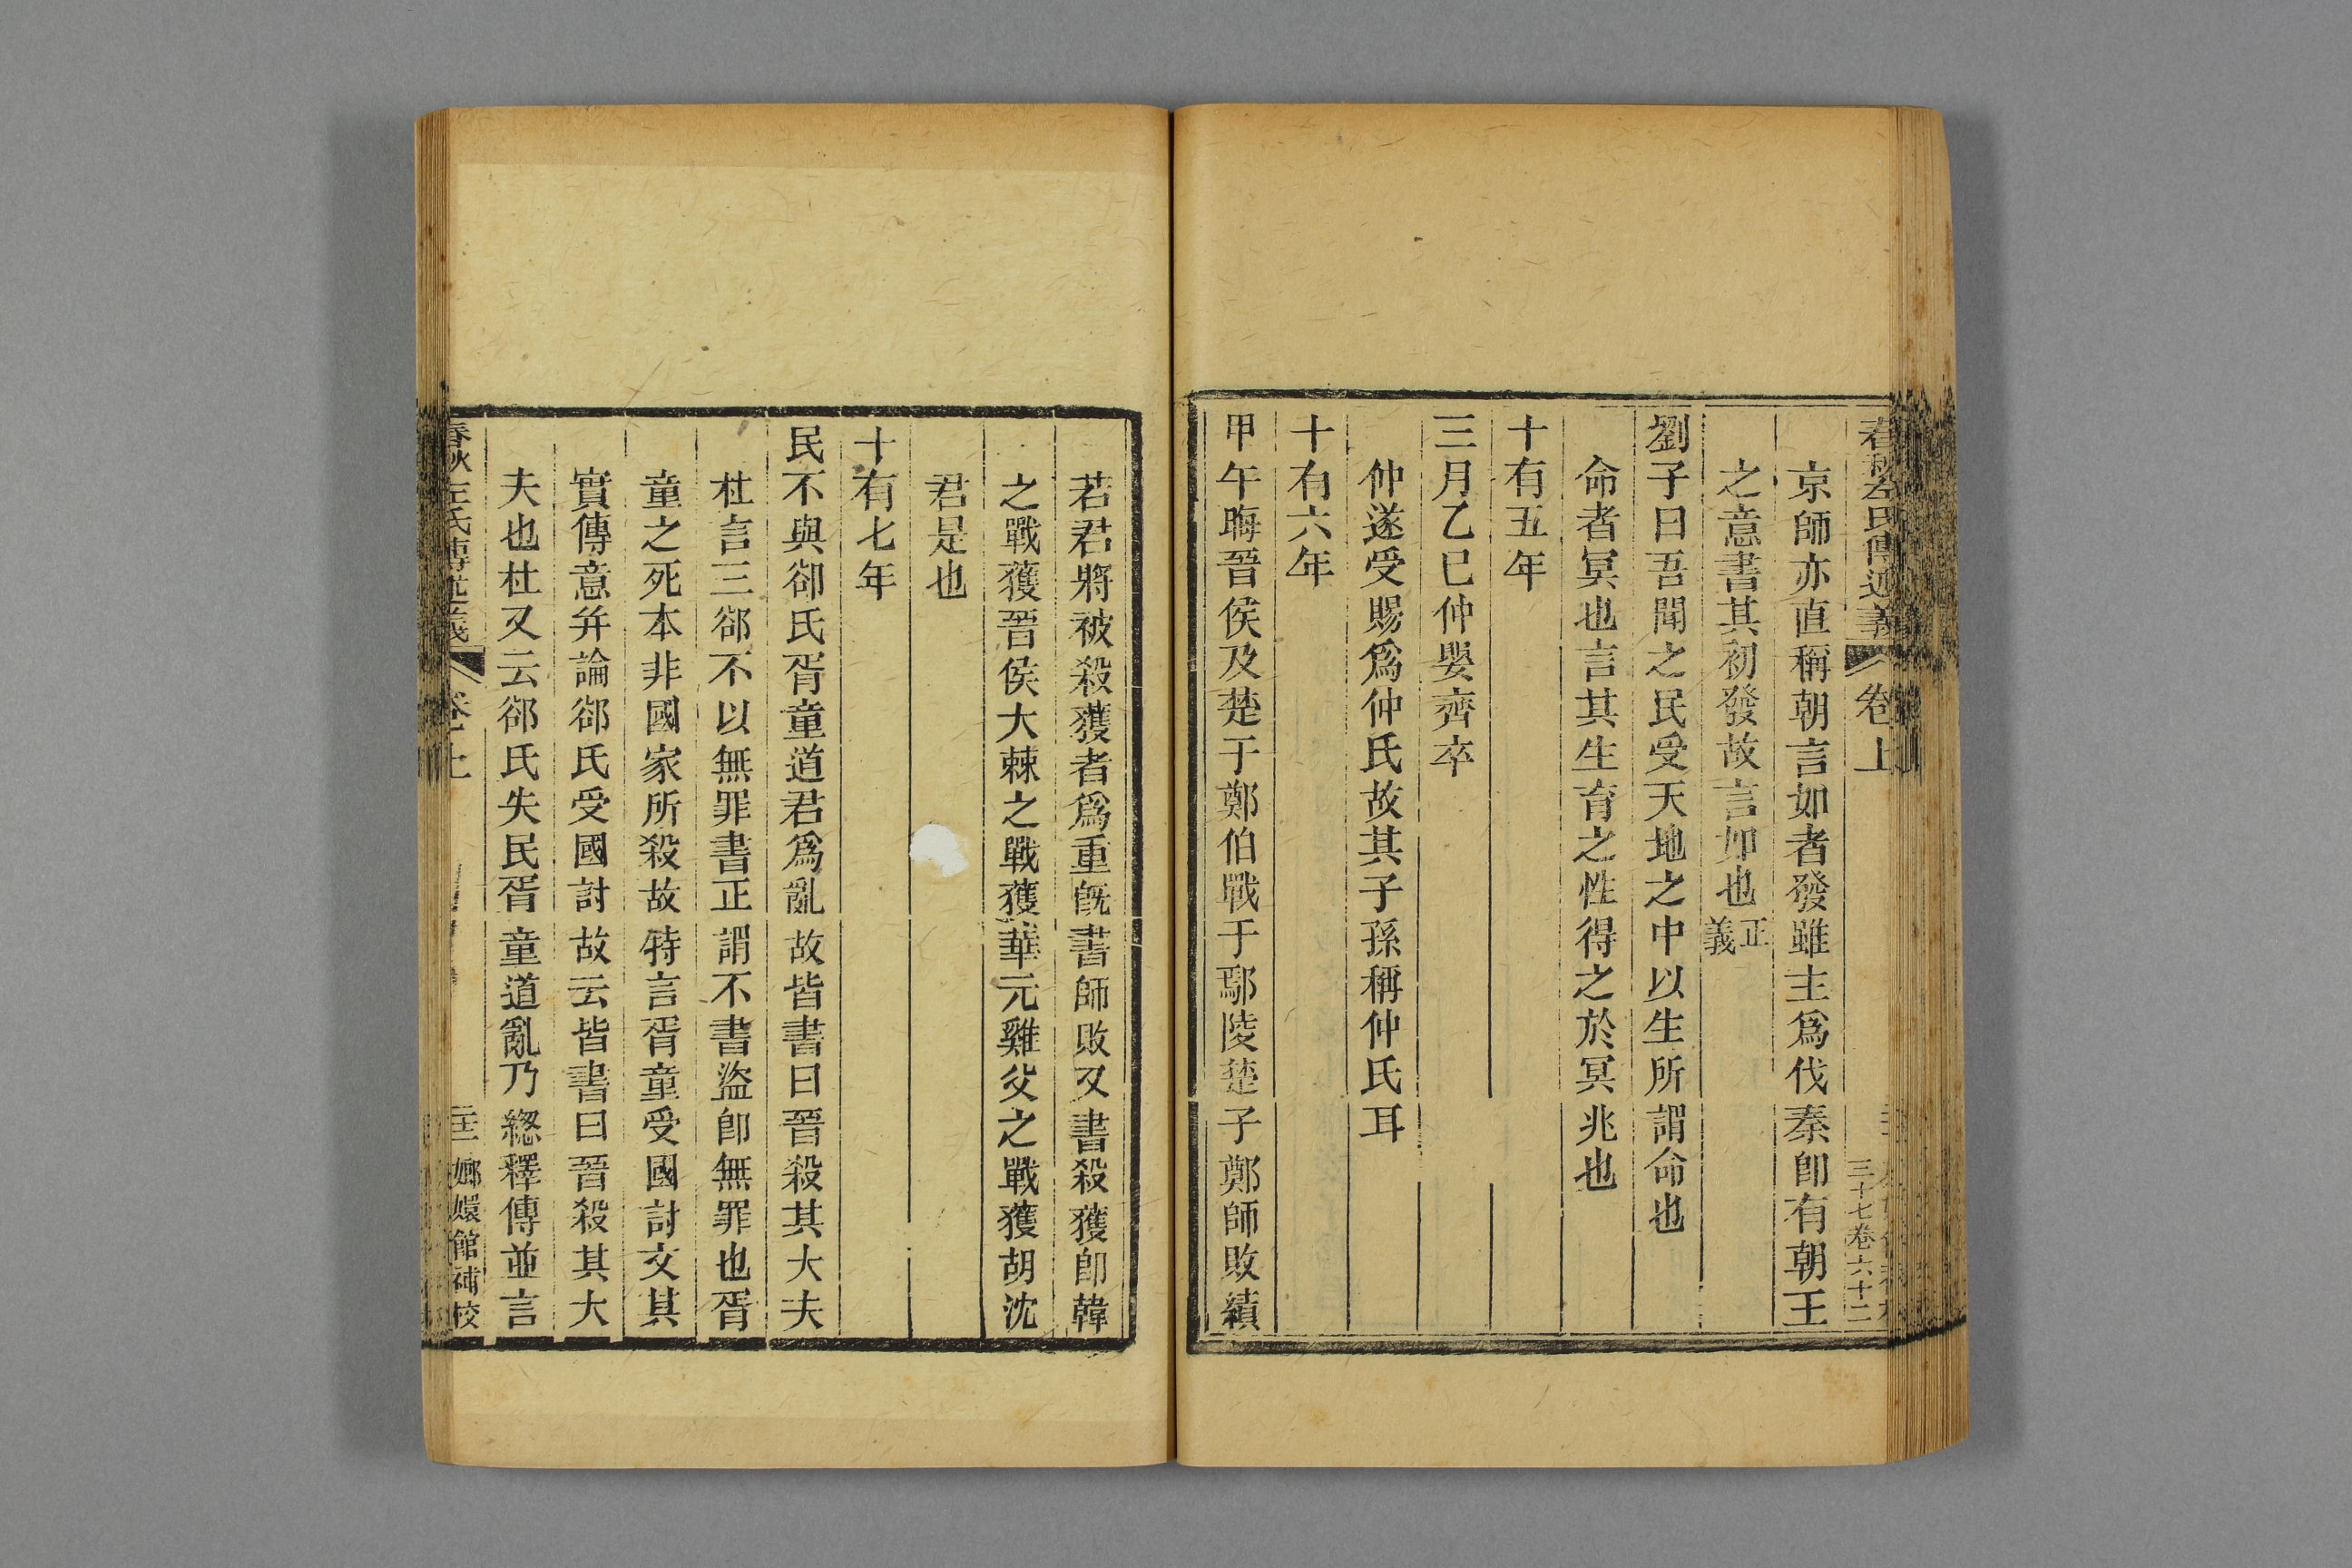 春秋左氏傳述義 卷上 三十七卷六十二
京師亦直稱朝言如者發雖主爲伐秦卽有朝王
之意書其初發故言如也正義
劉子曰吾聞之民受天地之中以生所謂命也
命者冥也言其生育之性得之於冥兆也
十有五年
三月乙巳仲嬰齊卒
仲遂受賜爲仲氏故其子孫稱仲氏耳
十有六年
甲午晦晉侯及楚于鄭伯戰于鄢陵楚子鄭師敗績
若君將被殺獲者爲重旣書師敗又書殺獲卽韓
之戰獲晉侯大棘之戰獲華元雞父之戰獲胡沈
君是也
十有七年
民不與郤氏胥童道君爲亂故皆書曰晉殺其大夫
杜言三郤不以無罪書正謂不書盜卽無罪也胥
童之死本非國家所殺故特言胥童受國討文其
實傳意幷論郤氏受國討故云皆書曰晉殺其大
夫也杜又云郤氏失民胥童道亂乃總釋傳並言
春秋左氏傳述義 嫏嬛館補校